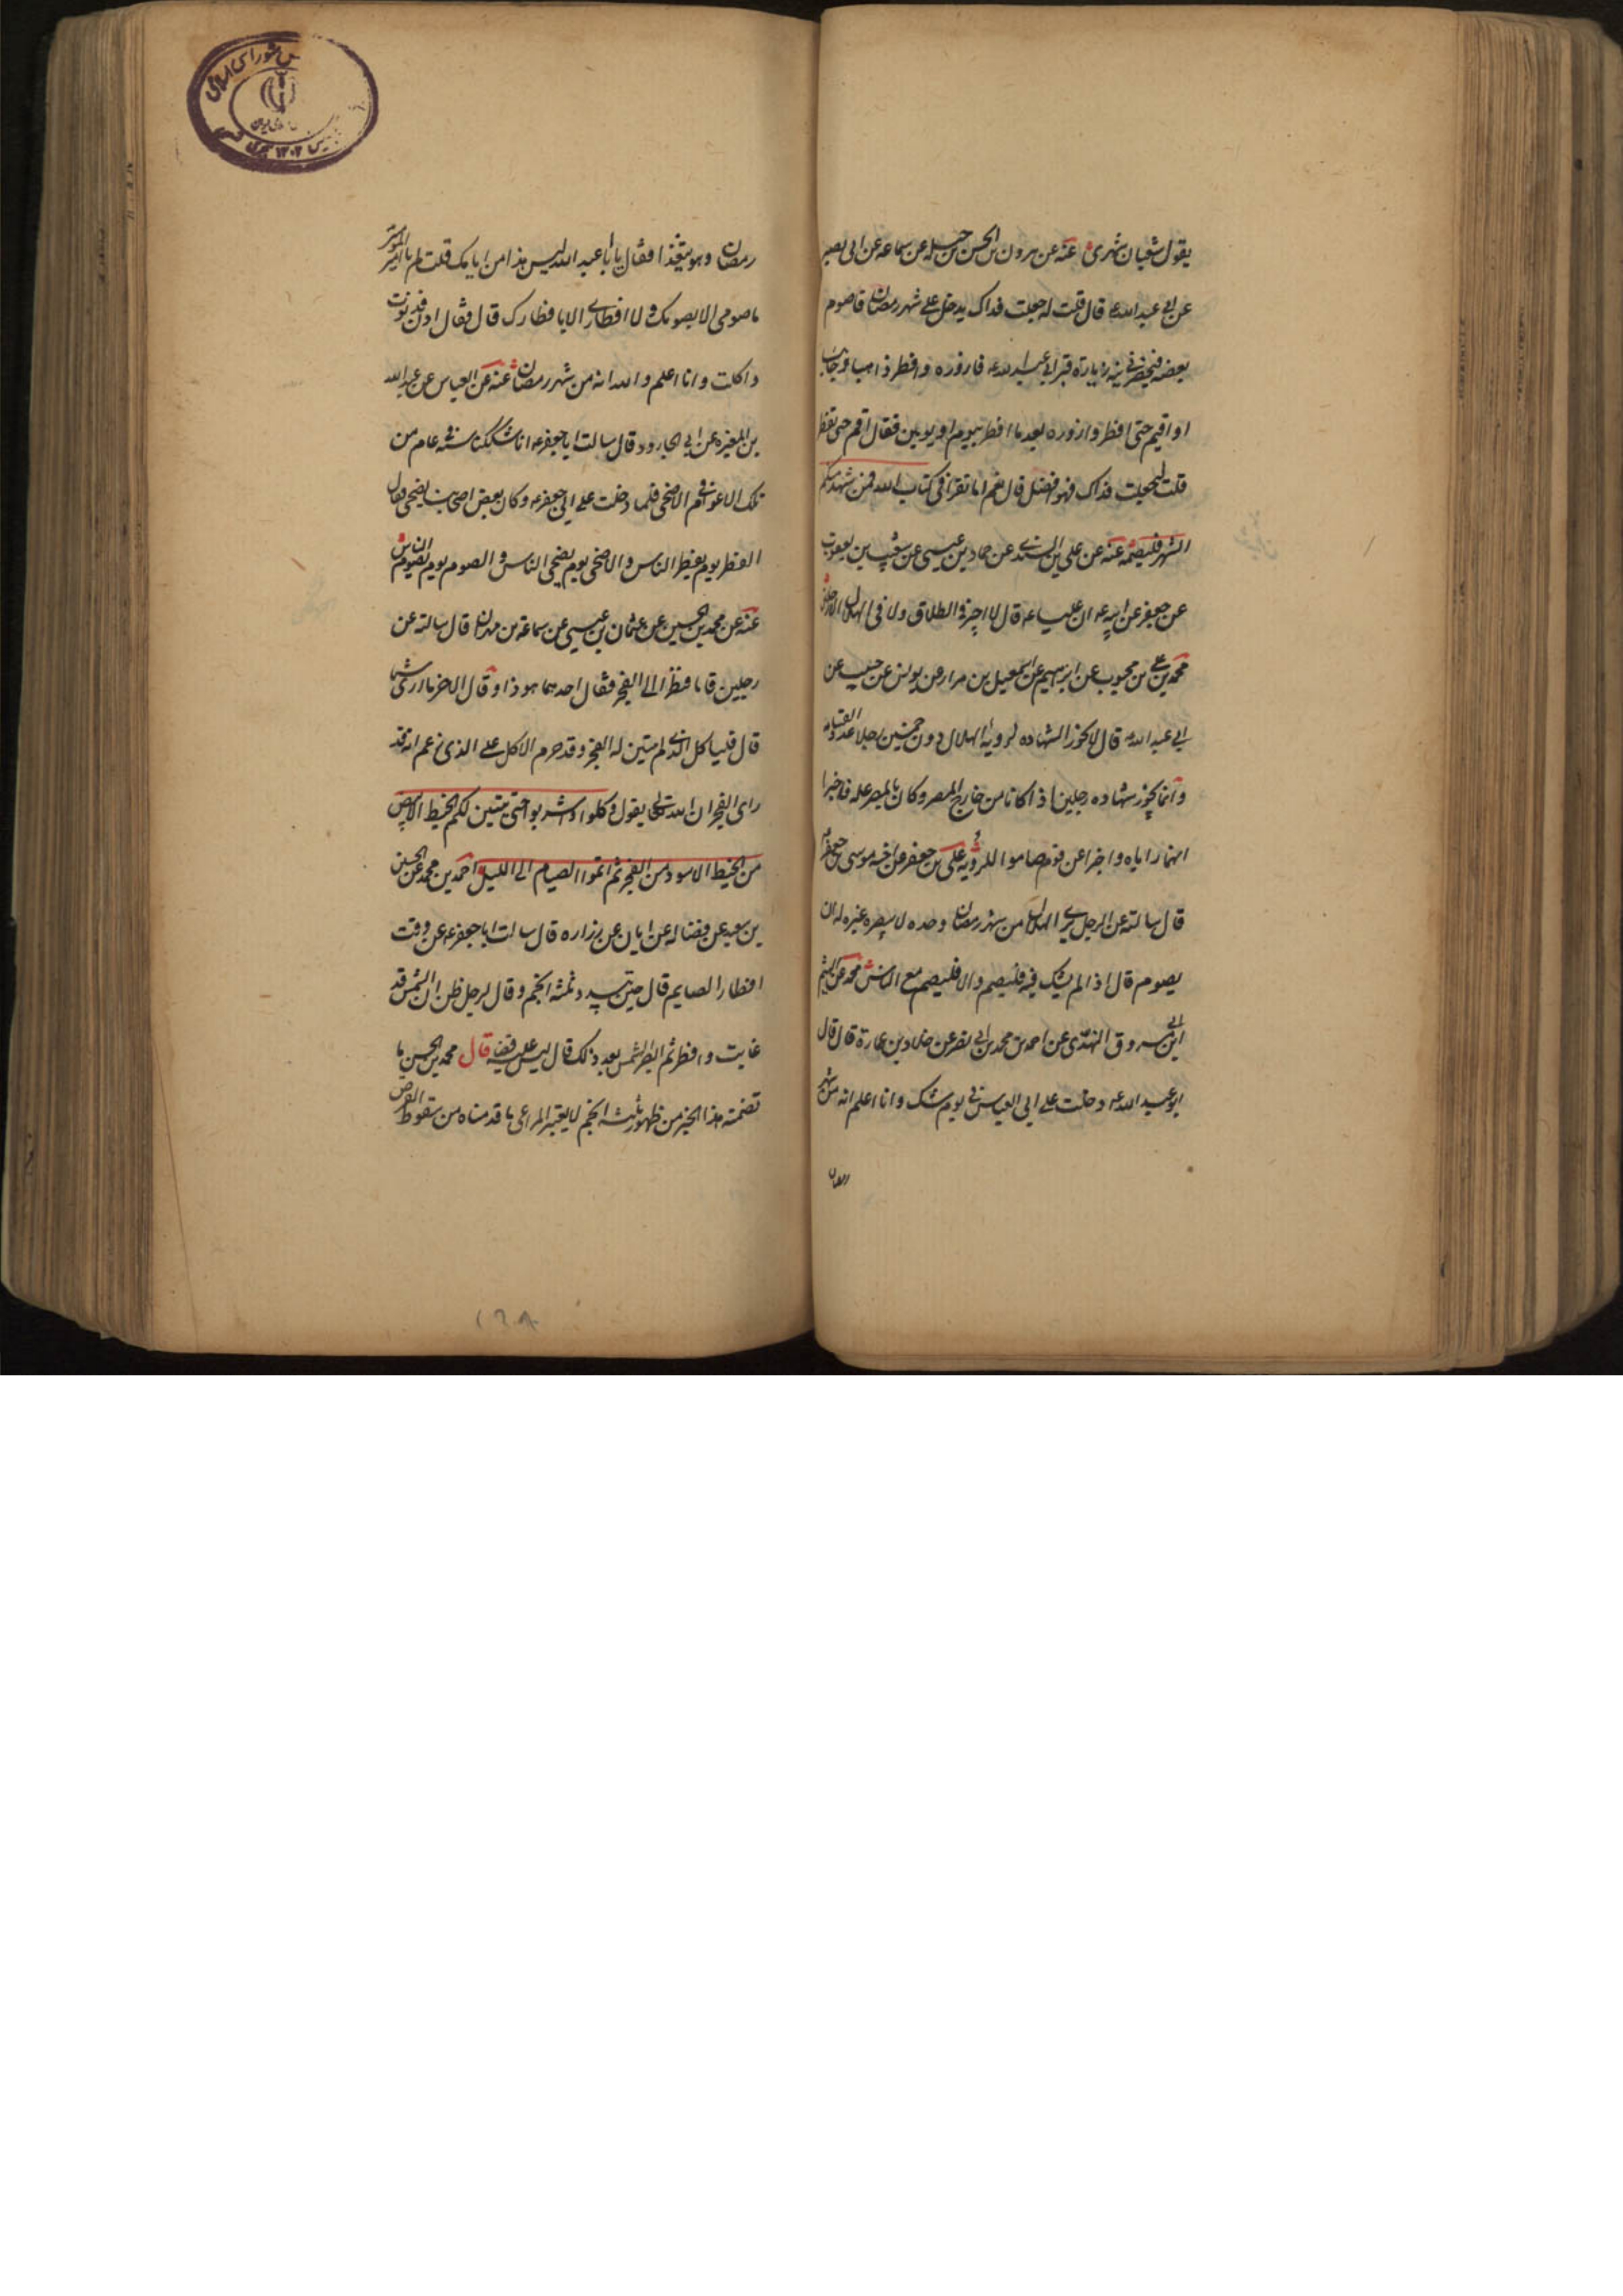 يقول شعبان شهرى عنه عن هرون بن الحسن بن جبله عن سماعه عن ابى بصير
عن ابى عبد الله ع قال قلت له جعلت فداك يدخل على شهر رمضان فاصوم
بعضه فيحضرنى نية زيارة قبر ابى عبد الله ع فازوره وافطر ذاهبا وجائيا
او اقيم حتى افطر وازوره بعد ما افطر بيوم او يومين فقال اقم حتى تفطر
قلت له جعلت فداك فهو افضل قال نعم اما تقرا فى كتاب الله فمن شهد منكم
الشهر فليصمه عنه عن على بن السندى عن حماد بن عيسى عن شعيب بن يعقوب
عن جعفر عن ابيه ع ان عليا ع قال لا اجيز فى الطلاق ولا فى الهلال الا رجلين
محمد بن على بن محبوب عن ابرهيم عن اسمعيل بن مرار عن يونس عن حبيب عن
ابى عبد الله ع قال لا يجوز الشهاده لروية الهلال دون خمسين رجلا عدد القسامه
وانما يجوز شهاده رجلين اذا كانا من خارج المصر وكان بالمصر عله فاخبرا
انهما راياه واخبرا عن قوم صاموا للروية على بن جعفر عن اخيه موسى بن جعفر ع
قال سالته عن الرجل يرى الهلال من شهر رمضان وحده لا يبصره غيره له ان
يصوم قال اذا لم يشك فيه فليصم والا فليصم مع الناس محمد عن الهيثم
ابن ابى مسروق النهدى عن احمد بن محمد بن ابى نصر عن خلاد بن عمارة قال قال
ابو عبد الله ع دخلت على ابى العباس فى يوم شك وانا اعلم انه من شهر
رمضان وهو يتغذا فقال يا با عبد الله ليس هذا من ايامك قلت لم يا امير المؤمنين
ما صومى الا بصومك ولا افطارى الا بافطارك قال فقال ادن فدنوت
واكلت وانا اعلم والله انه من شهر رمضان عنه عن العباس عن عبد الله
بن المغيره عن ابى الجارود قال سالت ابا جعفر ع انا شككنا سنة فى عام من
تلك الاعوام فى الاضحى فلما دخلت على ابى جعفر ع وكان بعض اصحابنا يضحى فقال
الفطر يوم يفطر الناس والاضحى يوم يضحى الناس والصوم يوم يصوم الناس
عنه عن محمد بن الحسين عن عثمان بن عيسى عن سماعة بن مهران قال سالته عن
رجلين قاما فنظرا الى الفجر فقال احدهما هو ذا وقال الاخر ما ارى شيئا
قال فلياكل الذى لم يتبين له الفجر وقد حرم الاكل على الذى زعم انه قد
راى الفجر ان الله تعالى يقول وكلوا واشربوا حتى يتبين لكم الخيط الابيض
من الخيط الاسود من الفجر ثم اتموا الصيام الى الليل احمد بن محمد عن الحسين
بن سعيد عن فضاله عن ابان عن زراره قال سالت ابا جعفر ع عن وقت
افطار الصايم قال حين يبدو ثلثة انجم وقال لرجل ظن ان الشمس قد
غابت وافطر ثم ابصر الشمس بعد ذلك قال ليس عليه قضا قال محمد بن الحسن ما
تضمنه هذا الخبر من ظهور ثلثة انجم لا يعتبر المراعى ما قدمناه من سقوط القرص